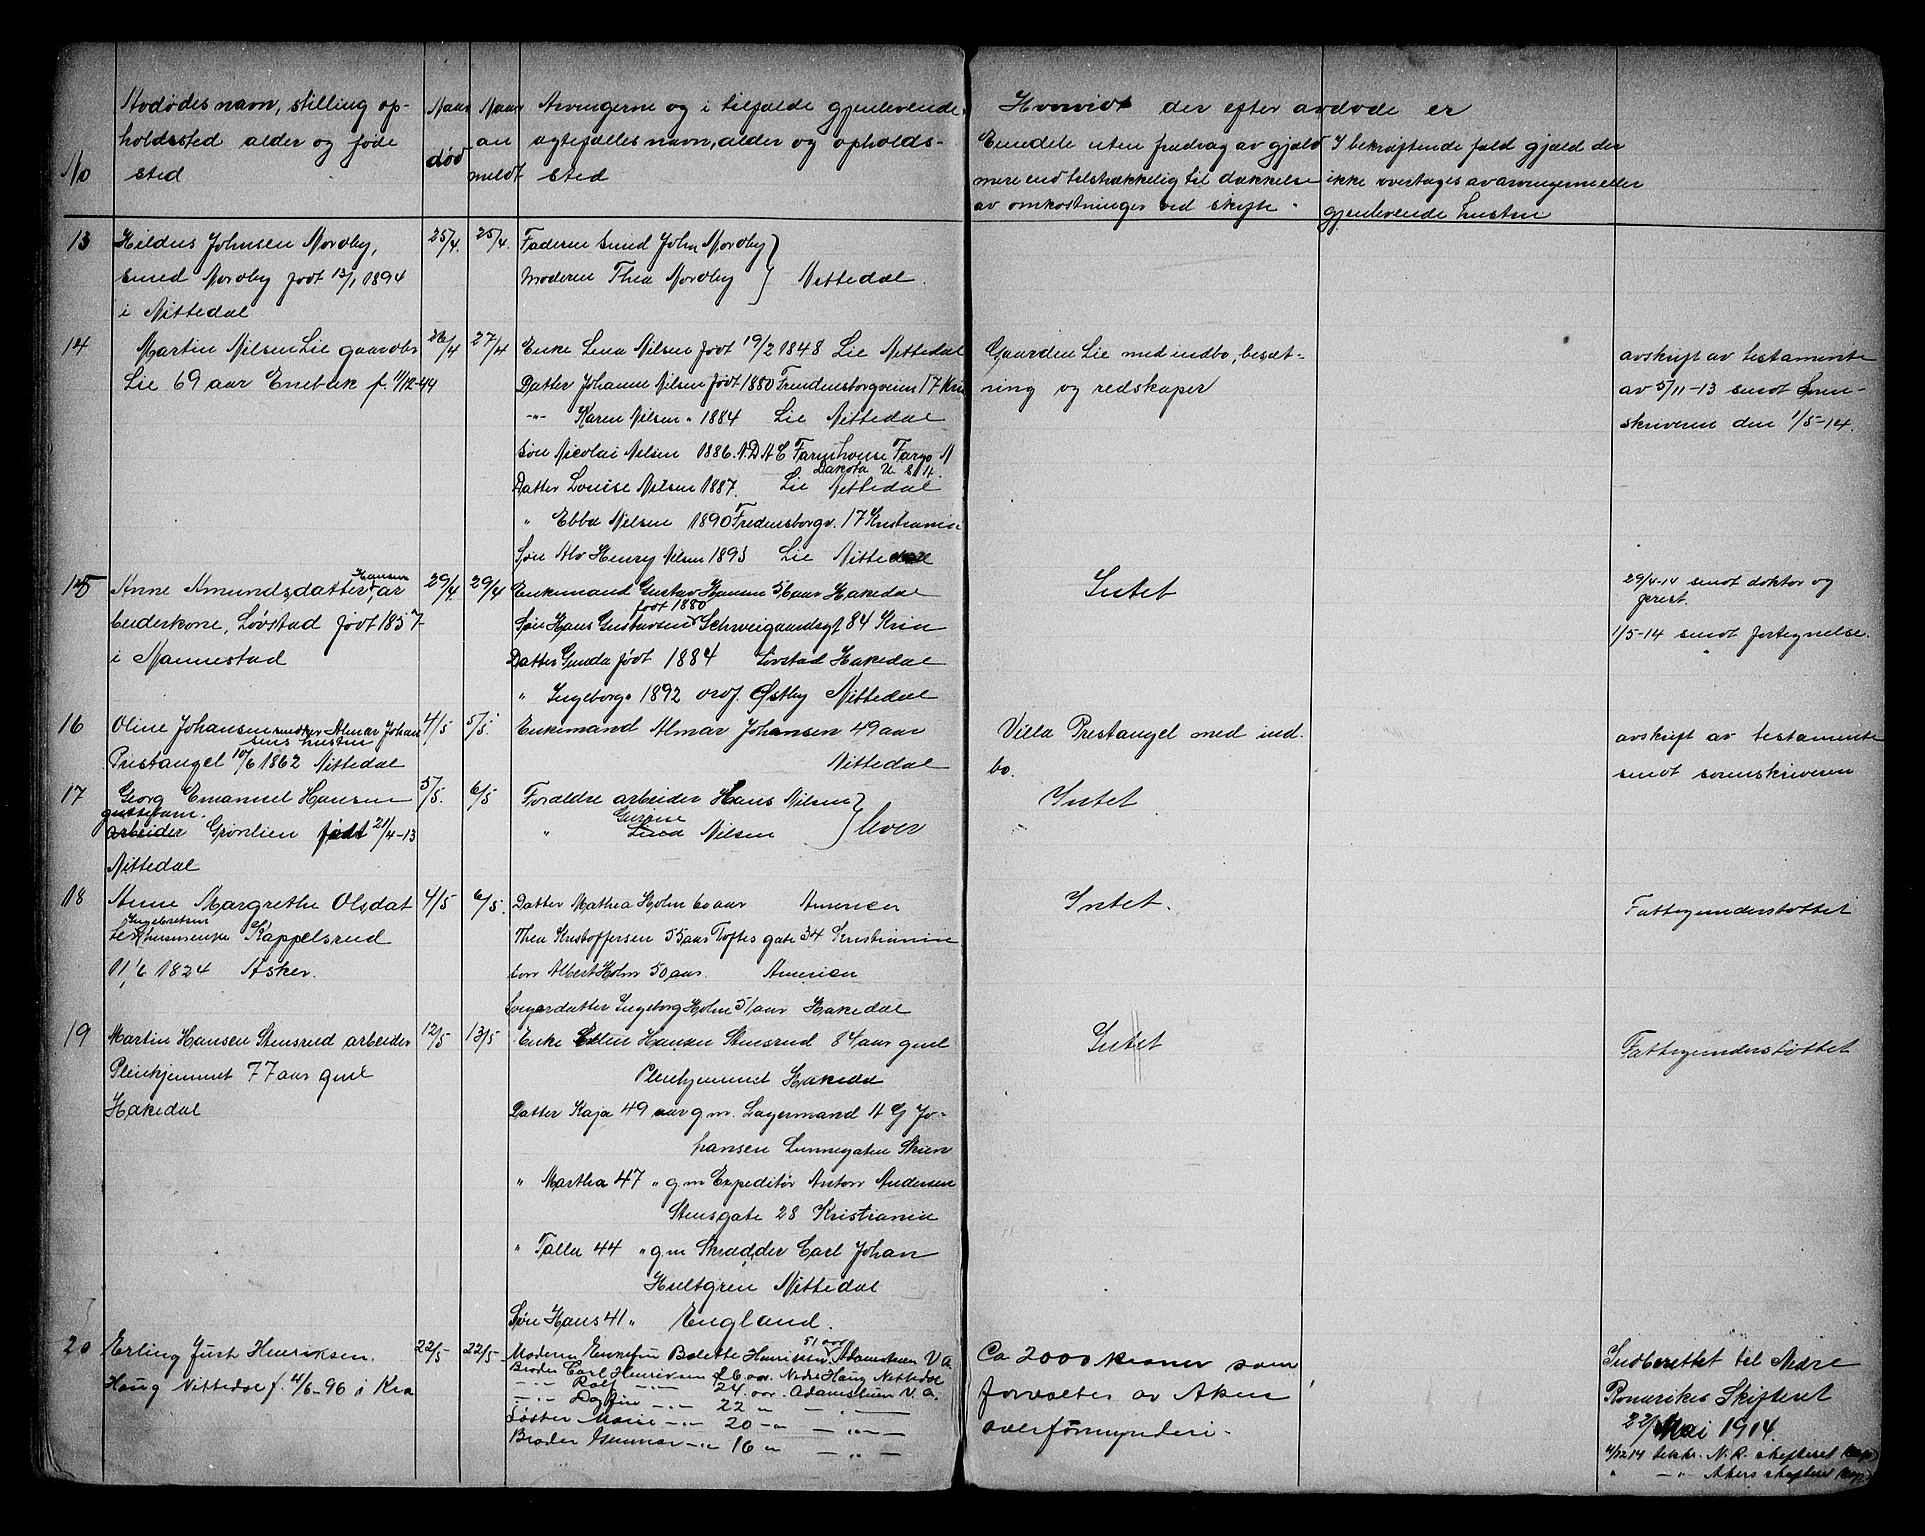 No
Avdødes navn, stilling op-
holdssted alder og føde
sted
Naar
død
Naar
an
meldt
Arvingerne og i tilfælde gjenlevende
egtefælles navn, alder og opholds-
sted
Hvorvidt der efter avdøde er
Eiendele uten fradrag av gjæld
mere end tilstrækkelig til dækkelse
av omkostninger ved skifte.
I bekræftende fald gjæld der
ikke overtages av arvingerne eller
gjenlevende hustru
13
Johnsen Nordby,
smed Nordby født 13/1 1894
i Nittedal
25/4.
25/4.
Faderen smed John Nordby
Moderen Thea Nordby } Nittedal.
14
Martin Nilsen Lie gaardbr
Lie 69 aar Enebak f. 11/12-44
26/4
27/4
Enke Lena Nilsen født 19/2 1848 Lie Nittedal
Datter Johanne Nilsen født 1880 17 Kria
-"- Karen Nilsen " 1884 Lie Nittedal
Søn Nicolai Nilsen 1886. N.D.A.C Farmhouse Fargo N
Dakota U.S.A.
Datter Louise Nilsen 1887. Lie Nittedal
" Ebba Nilsen 1890 Fredensborgv. 17 Kristiania
Søn Alv Henry Nilsen 1893 Lie Nittedal
Gaarden Lie med indbo, besæt-
ning og redskaper
avskrift av testamente
av 5/11-13 sendt Soren-
skriveren den 1/5-14.
15
Anne Amundsdatter Hansen, ar
beiderskone, Løvstad født 1857
i Nannestad
29/4
29/4
Enkemand Gustav Hansen 56 aar Hakedal
født 1880
Søn Hans Gustavsen Schweigaardsgt 84 Kria
Datter Gunda født 1884 Løvstad Hakedal
" Ingeborg " 1892 Østby Nittedal
Intet
29/4-14 sendt doktor og
prest.
1/5-14 sendt fortegnelse.
16
Oline Johansen Almar Johan
sens hustru
Prestangel 10/6 1862 Nittedal
4/5
5/5
Enkemand Almar Johansen 49 aar
Nittedal
Villa Prestangel med ind-
bo.
avskrift av testamente
sendt sorenskriveren
17
Georg Emanuel Hansen
arbeider Grønlien født 21/4-13
Nittedal
5/5.
6/5
Forældre arbeider Hans Nilsen
" Nilsen } lever
Intet
18
Anne Margrethe Olsdat
ter Ingebretsen Kappelsrud
11/6 1824 Asker.
4/5
6/5.
Datter Mathea Holm 60 aar Amerika
Thea Kristoffersen 55 aar Toftes gate 34 Kristiania
Søn Albert Holm 50 aar. Amerika
Svigerdatter Ingeborg Holm 51 aar Hakedal
Intet.
Fattigunderstøttet
19
Martin Hansen Stensrud arbeider
Pleiehjemmet 77 aar gml
Hakedal
12/5
13/5
Enke Hansen Stensrud 84 aar gml
Pleiehjemmet Hakedal
Datter Kaja 49 aar g.m. Lagermand A G Jo-
hansen Skien
" Martha 47 " g.m Expeditør Anton Andersen
Stensgate 28 Kristiania
" Talla 44 " g.m Skrædder Carl Johan
Hultgren Nittedal
Søn Hans 41 " England.
Intet
Fattigunderstøttet
20
Erling Just Henriksen.
Haug Nittedal f. 4/6-96 i Kra
22/5
22/5
51 aar
Moderen Enkefru Bolette Henriksen, Adamstuen V A
Broder Carl Henriksen 26 aar. Nedre Haug Nittedal
-"- Rolf -"- 24 aar. Adamstuen V. A.
-"- Dagfin -"- 22 " - " -
Søster Marie -"- 20 -"- - " -
Broder Gunnar -"- 16 " - " -
Ca 2000 kroner som
forvaltes av Aker
overformynderi.
Indberettet til Nedre
Romerikes Skifteret
22/ Mai 1914.
4/12 14 N.R. skifteret
" -"- Akers skifteret